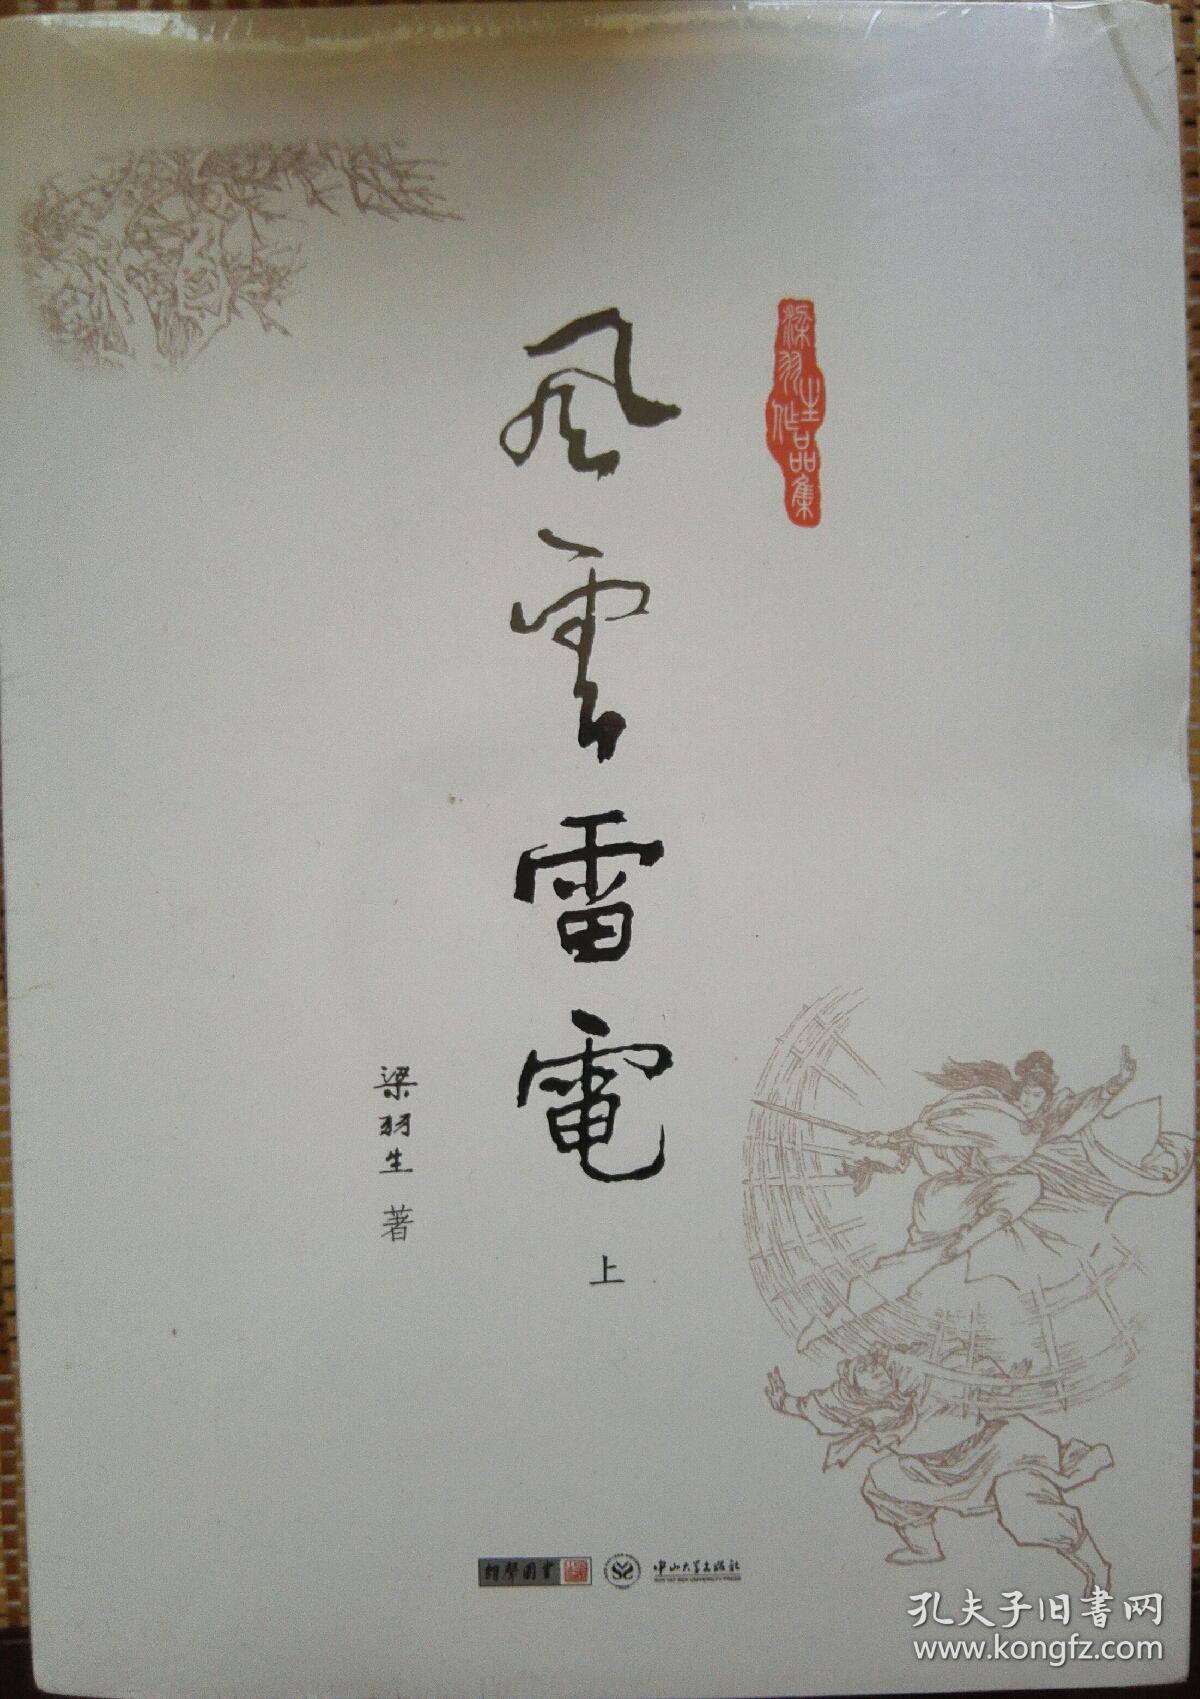 梁羽生作品集
風雲雷電
上
梁羽生 著
朗聲圖書
中山大學出版社
SUN YAT-SEN UNIVERSITY PRESS
孔夫子旧書网
www.kongfz.com